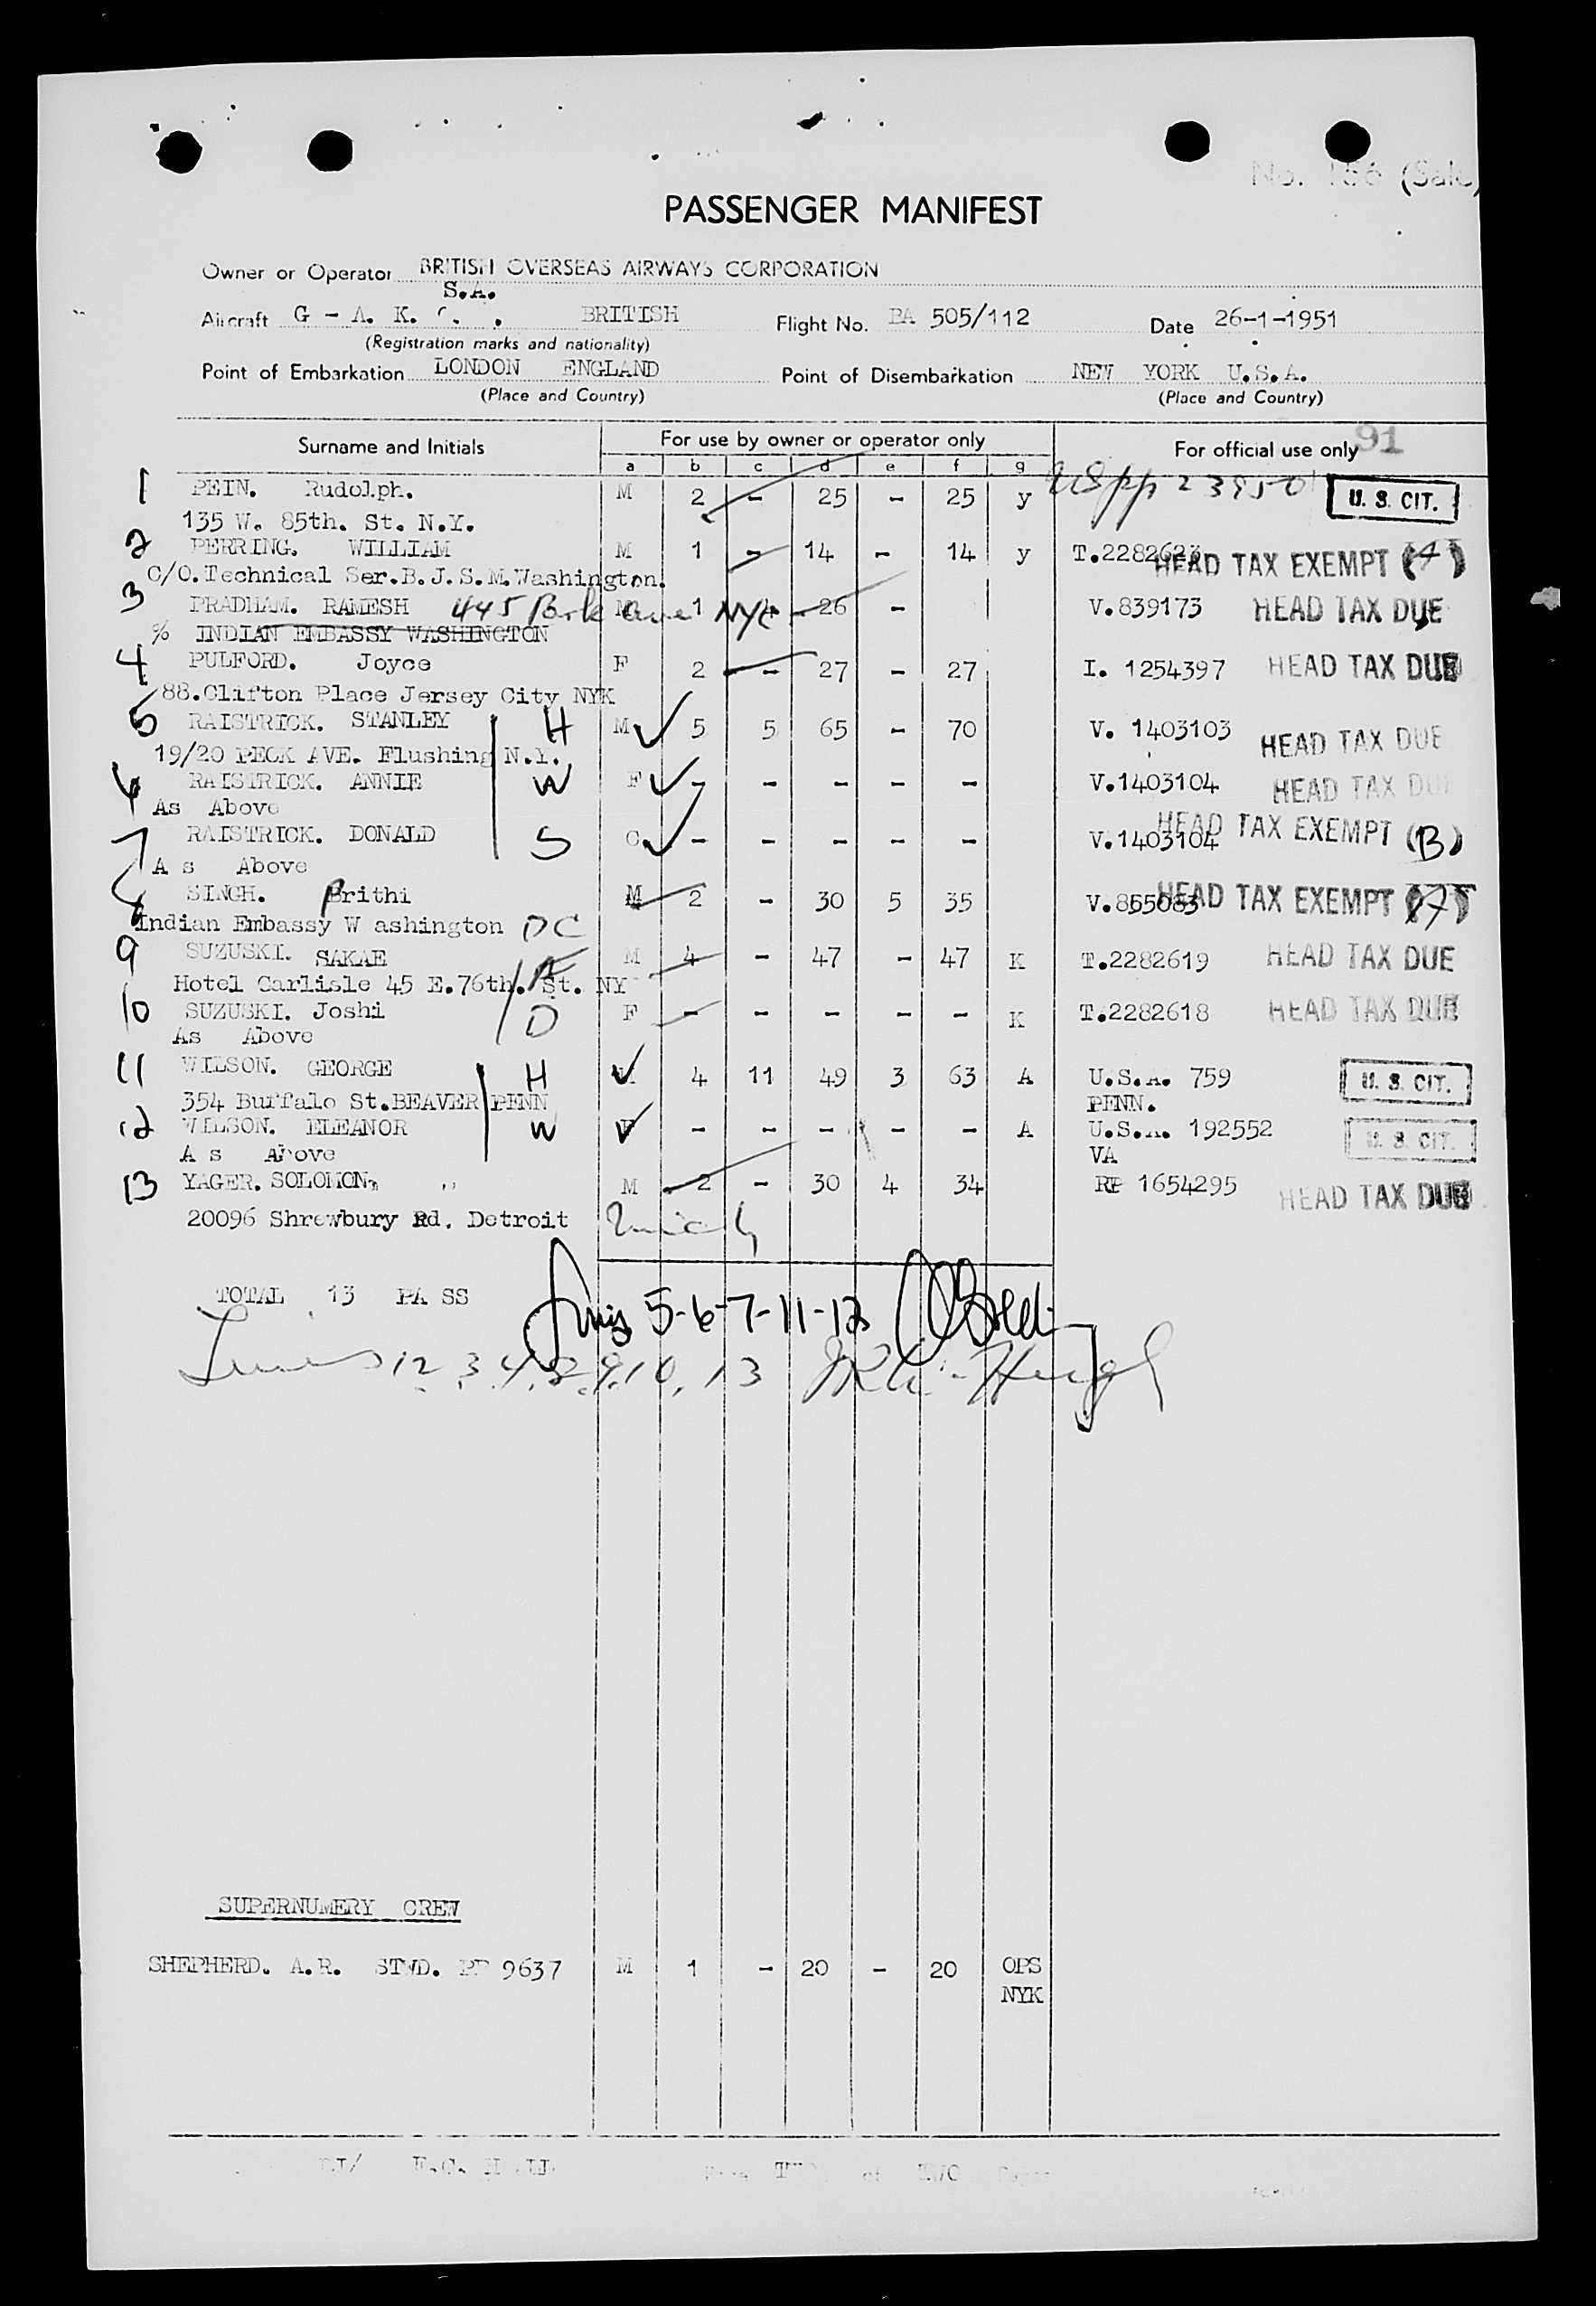 No. 156 (Sale)
PASSENGER MANIFEST
Owner or Operator BRITISH OVERSEAS AIRWAYS CORPORATION
S.A.
Aircraft G - A. K. . BRITISH Flight No. BA 505/112 Date 26-1-1951
(Registration marks and nationality)
Point of Embarkation LONDON ENGLAND Point of Disembarkation NEW YORK U.S.A.
(Place and Country) (Place and Country)
Surname and Initials For use by owner or operator only For official use only 91
a b c d e f g
1 PEIN. Rudolph. M 2 - 25 - 25 y U.S. CIT.
135 W. 85th. St. N.Y.
2 PERRING. WILLIAM M 1 - 14 - 14 y T.2282623 HEAD TAX EXEMPT (4)
C/O.Technical Ser.B.J.S.M.Washington.
3 PRADHAM. RAMESH 445 Park ave NYC M 1 - 26 - V.839173 HEAD TAX DUE
% INDIAN EMBASSY WASHINGTON
4 PULFORD. Joyce F 2 - 27 - 27 I. 1254397 HEAD TAX DUE
88.Clifton Place Jersey City NYK
5 RAISTRICK. STANLEY H M 5 5 65 - 70 V. 1403103 HEAD TAX DUE
19/20 PECK AVE. Flushing N.Y.
6 RAISTRICK. ANNIE W F - - - - - V.1403104 HEAD TAX DUE
As Above
7 RAISTRICK. DONALD S C - - - - - V.1403104 HEAD TAX EXEMPT (B)
A s Above
8 SINGH. Prithi M 2 - 30 5 35 V.855083 HEAD TAX EXEMPT
Indian Embassy W ashington DC
9 SUZUSKI. SAKAE F M 4 - 47 - 47 K T.2282619 HEAD TAX DUE
Hotel Carlisle 45 E.76th. St. NY
10 SUZUSKI. Joshi D F - - - - - K T.2282618 HEAD TAX DUE
As Above
11 WILSON. GEORGE H 4 11 49 3 63 A U.S.A. 759 U.S. CIT.
354 Buffalo St.BEAVER PENN PENN.
12 WILSON. ELEANOR W F - - - - - A U.S.A. 192552 U.S. CIT.
A s Above VA
13 YAGER. SOLOMON. M 2 - 30 4 34 RP 1654295 HEAD TAX DUE
20096 Shrewbury Rd. Detroit Mich
TOTAL 13 PA SS
5-6-7-11-12
Lines 1 2 3 4 8 9 10, 13
SUPERNUMERY CREW
SHEPHERD. A.R. STWD. PP 9637 M 1 - 20 - 20 OPS
NYK
of TWO Pages